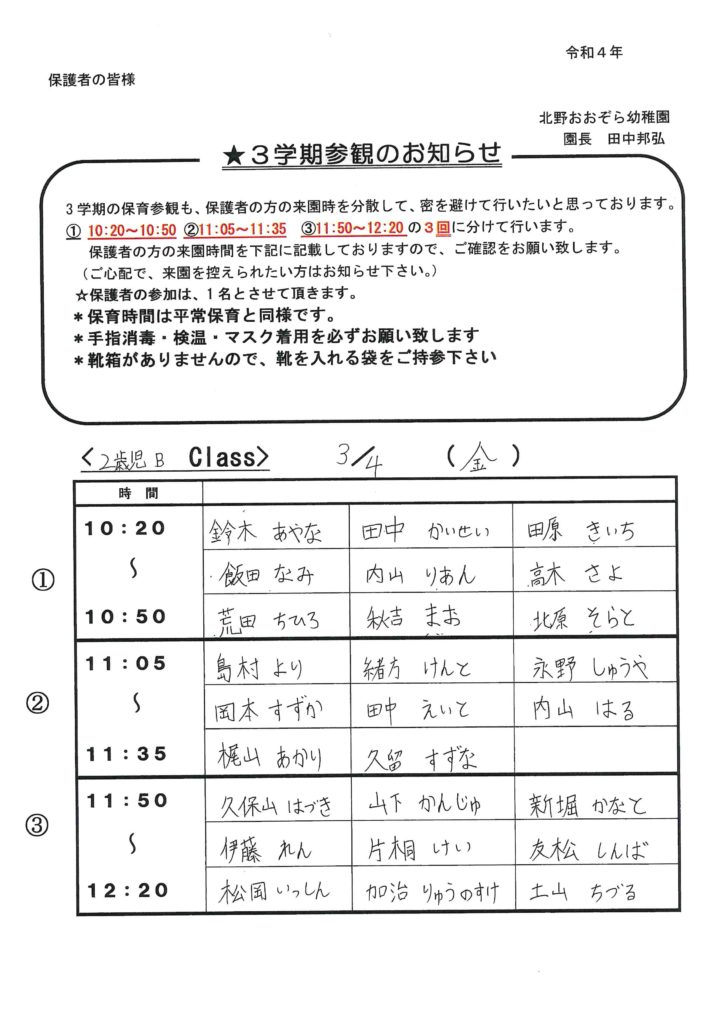 令和４年
保護者の皆様
北野おおぞら幼稚園
園長　田中邦弘
★３学期参観のお知らせ
３学期の保育参観も、保護者の方の来園時を分散して、密を避けて行いたいと思っております。
① 10:20～10:50 ②11:05～11:35 ③11:50～12:20 の３回に分けて行います。
保護者の方の来園時間を下記に記載しておりますので、ご確認をお願い致します。
（ご心配で、来園を控えられたい方はお知らせ下さい。）
☆保護者の参加は、１名とさせて頂きます。
＊保育時間は平常保育と同様です。
＊手指消毒・検温・マスク着用を必ずお願い致します
＊靴箱がありませんので、靴を入れる袋をご持参下さい
<2歳児 B Class> 3/4 (金)
時　間
① 10：20 ～ 10：50
鈴木 あやな 田中 かいせい 田原 きいち
飯田 なみ 内山 りあん 高木 さよ
荒田 ちひろ 秋吉 まお 北原 そらと
② 11：05 ～ 11：35
島村 より 緒方 けんと 永野 しゅうや
岡本 すずか 田中 えいと 内山 はる
梶山 あかり 久留 すずな
③ 11：50 ～ 12：20
久保山 はづき 山下 かんじゅ 新堀 かなと
伊藤 れん 片桐 けい 友松 しんば
松岡 いっしん 加治 りゅうのすけ 土山 ちづる